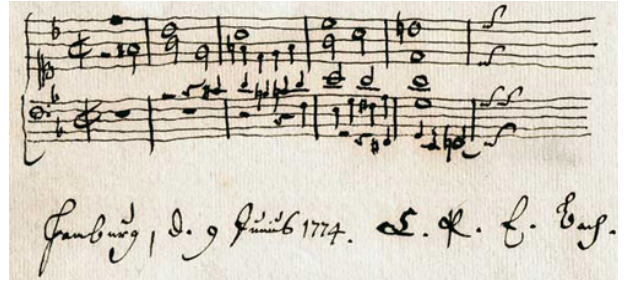 Hamburg, d. 9 Junius 1774. C. P. E. Bach.